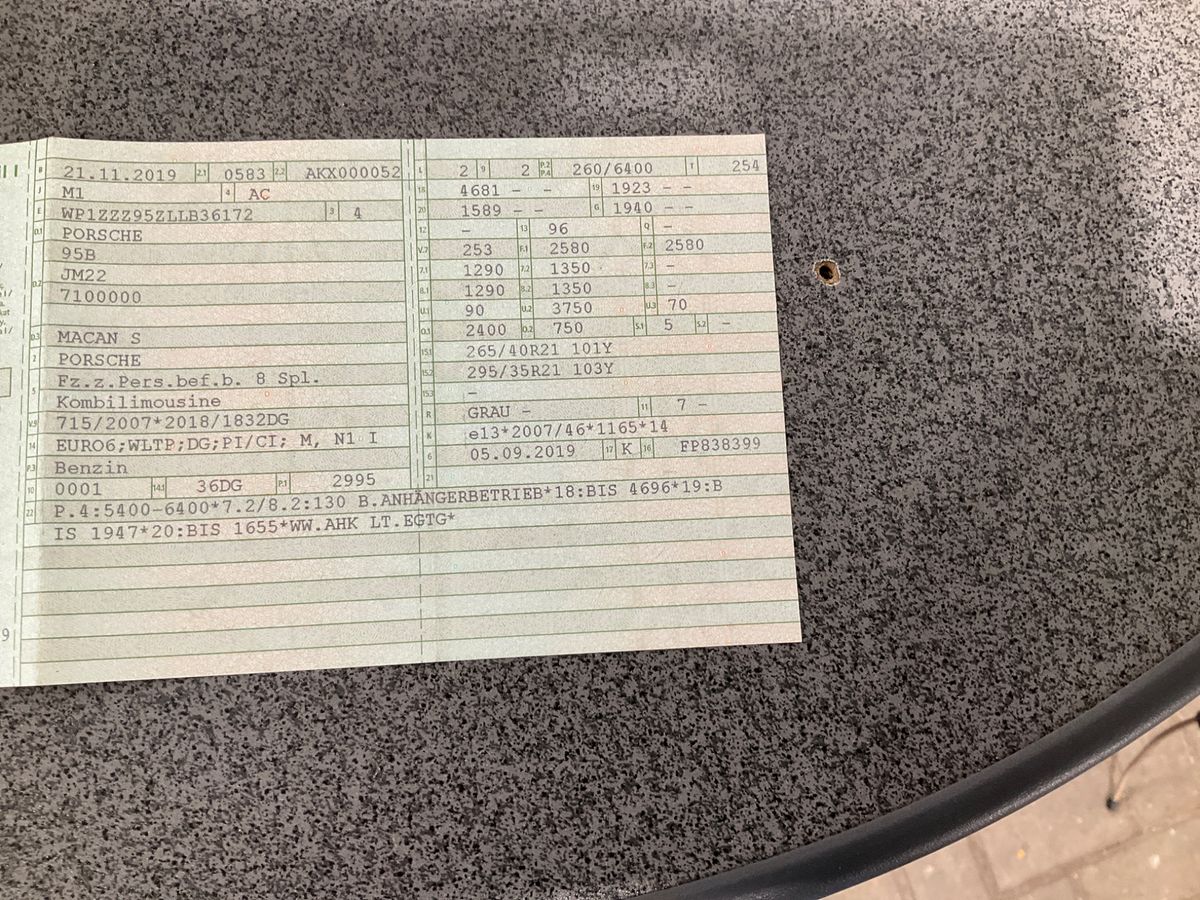 B 21.11.2019 2.1 0583 2.2 AKX000052 L 2 9 2 P.2 P.4 260/6400 T 254
J M1 4 AC 18 4681 - - 19 1923 - -
E WP1ZZZ95ZLLB36172 3 4 20 1589 - - G 1940 - -
D.1 PORSCHE 12 - 13 96 Q -
95B V.7 253 F.1 2580 F.2 2580
D.2 JM22 7.1 1290 7.2 1350 7.3 -
7100000 8.1 1290 8.2 1350 8.3 -
U.1 90 U.2 3750 U.3 70
D.3 MACAN S O.1 2400 O.2 750 S.1 5 S.2 -
2 PORSCHE 15.1 265/40R21 101Y
5 Fz.z.Pers.bef.b. 8 Spl. 15.2 295/35R21 103Y
Kombilimousine 15.3 -
V.9 715/2007*2018/1832DG R GRAU - 11 7 -
14 EURO6;WLTP;DG;PI/CI; M, N1 I K e13*2007/46*1165*14
P.3 Benzin 6 05.09.2019 17 K 16 FP838399
10 0001 14.1 36DG P.1 2995 21 -
22 P.4:5400-6400*7.2/8.2:130 B.ANHÄNGERBETRIEB*18:BIS 4696*19:B
IS 1947*20:BIS 1655*WW.AHK LT.EGTG*
9